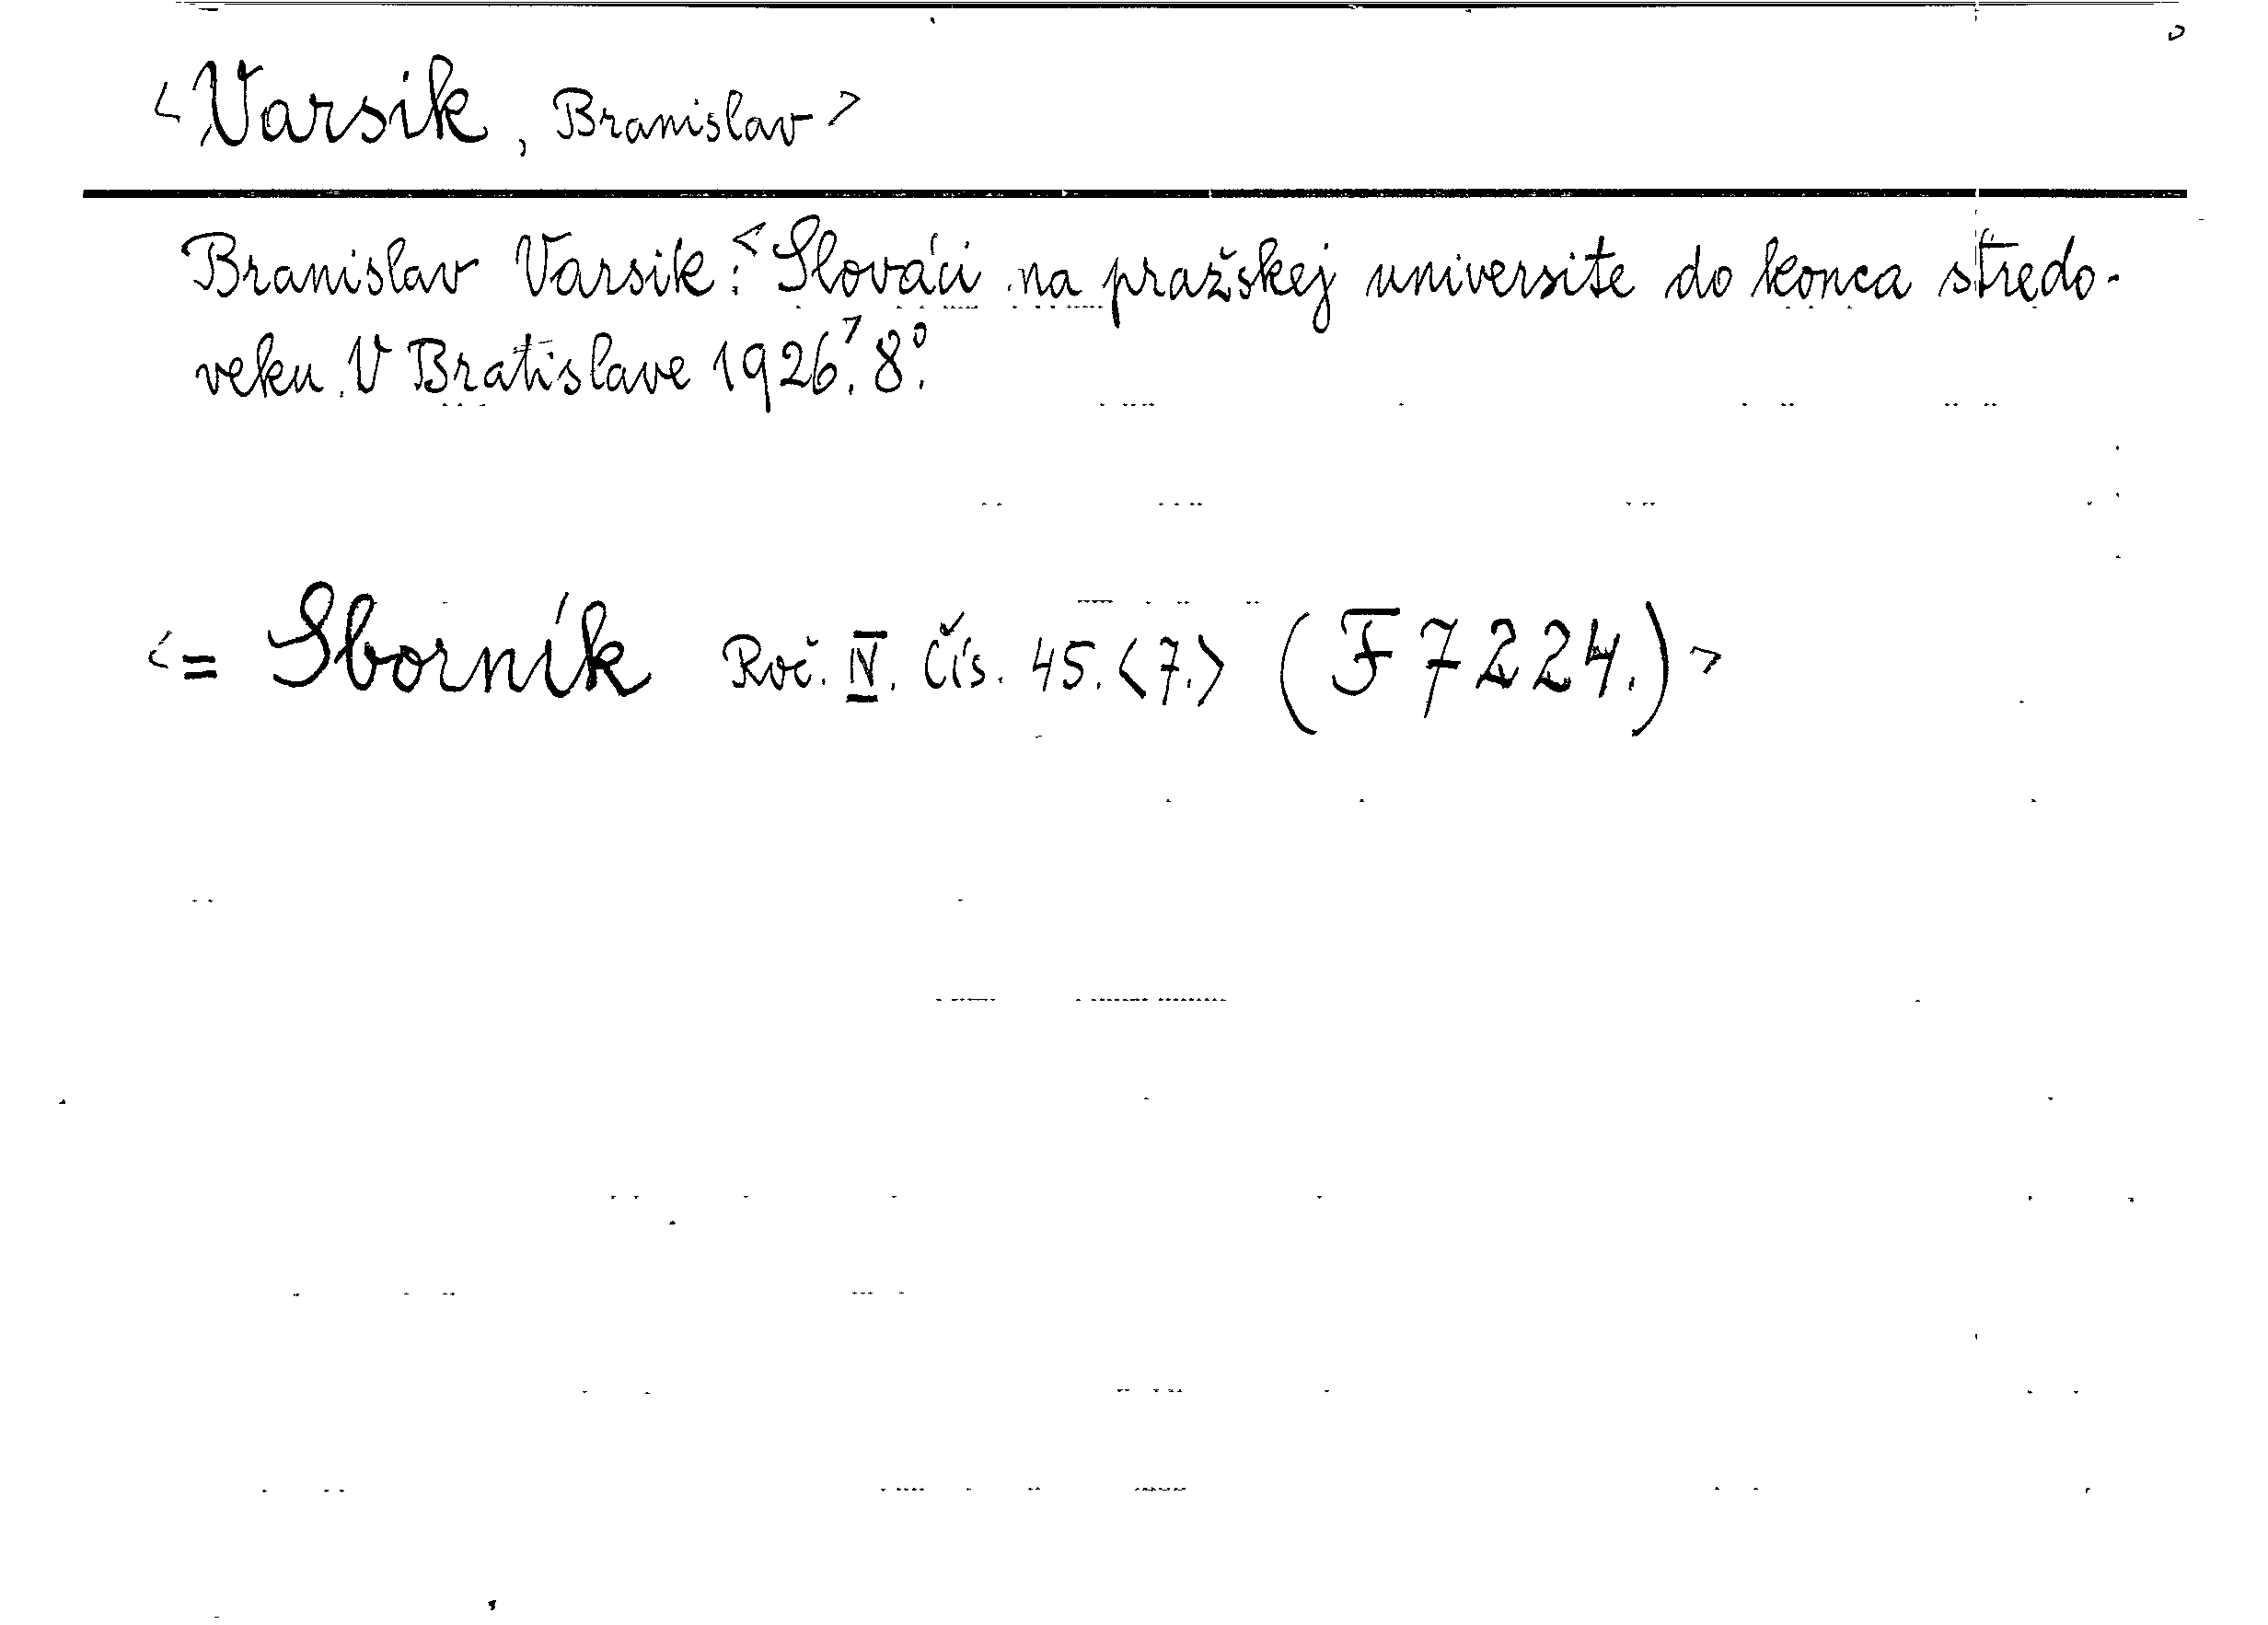 <Varsik, Branislav>
Branislav Varsik: <Slováci na pražskej universite do konca stredo-
veku. V Bratislave 1926.> 8°.
<= Sborník Roč. IV. Čís. 45. <7.> (F 7224.)>